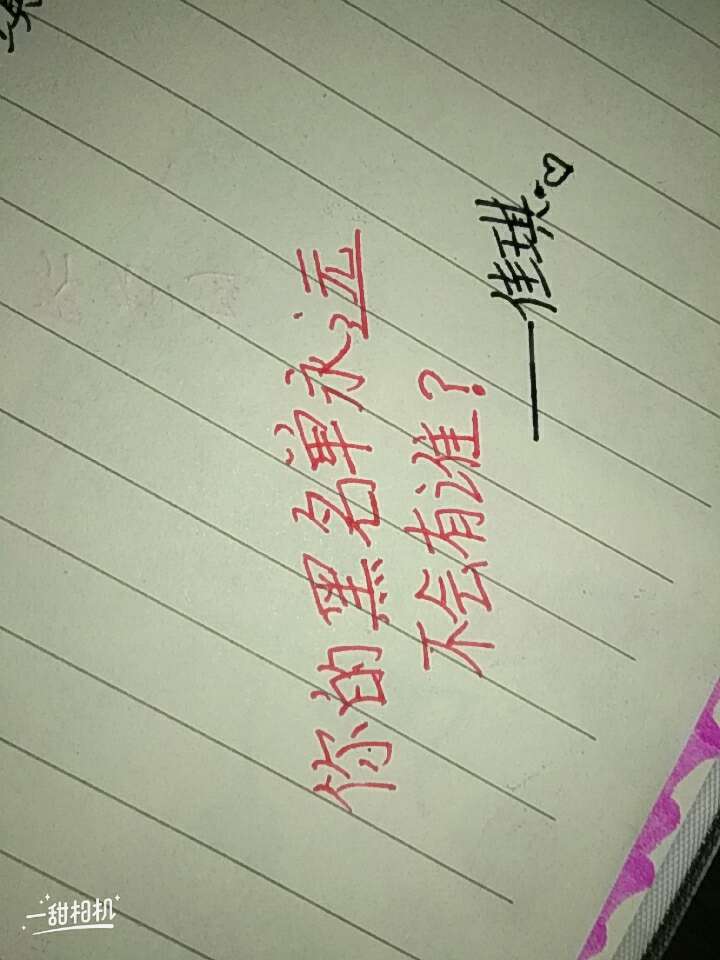 你的黑名单永远
不会有谁？
——佳琪.♡
一甜相机